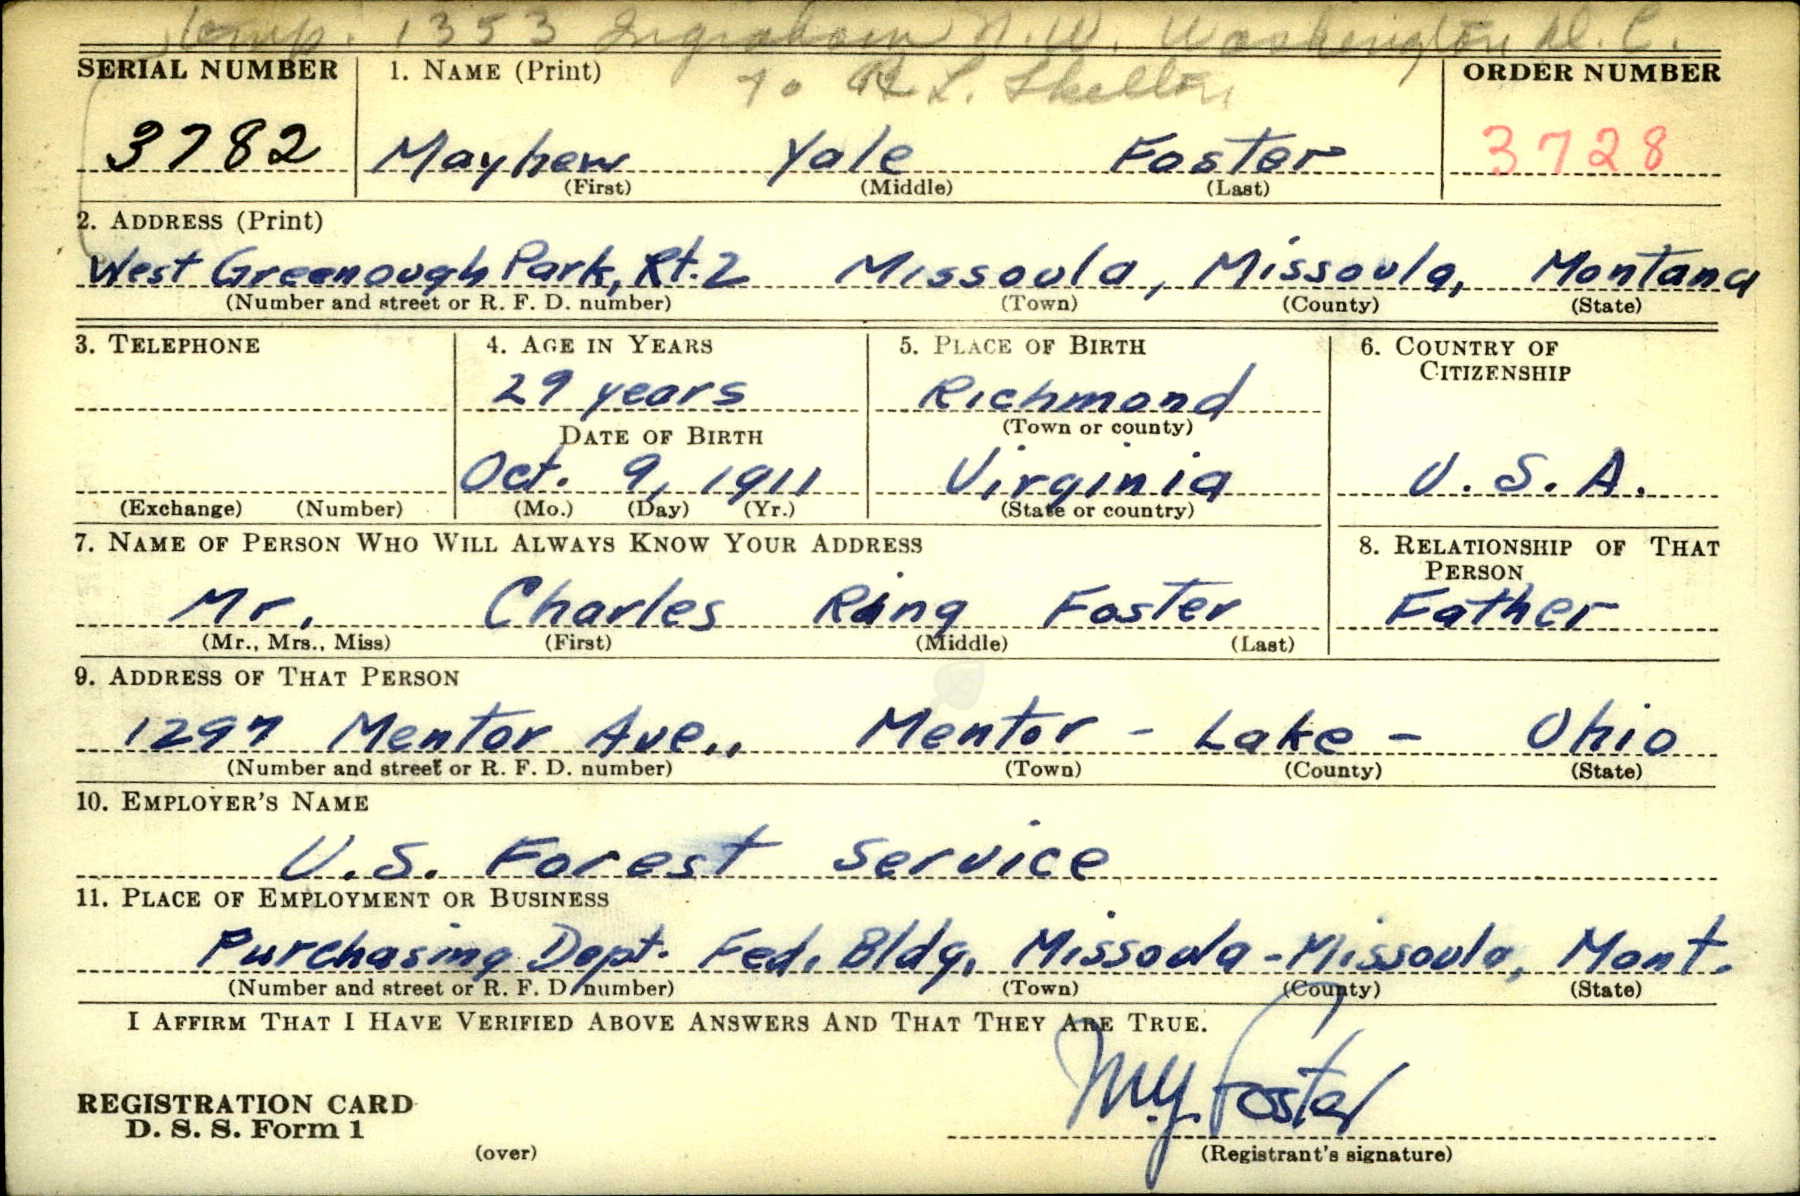 Temp. 1353 Ingraham N.W. Washington D.C.
SERIAL NUMBER 1. NAME (Print) ORDER NUMBER
% R. L. Skelton
3782 Mayhew Yale Foster 3728
(First) (Middle) (Last)
2. ADDRESS (Print)
West Greenough Park, Rt. 2 Missoula, Missoula, Montana
(Number and street or R. F. D. number) (Town) (County) (State)
3. TELEPHONE 4. AGE IN YEARS 5. PLACE OF BIRTH 6. COUNTRY OF
CITIZENSHIP
29 years Richmond
DATE OF BIRTH (Town or county)
Oct. 9, 1911 Virginia U. S. A.
(Exchange) (Number) (Mo.) (Day) (Yr.) (State or country)
7. NAME OF PERSON WHO WILL ALWAYS KNOW YOUR ADDRESS 8. RELATIONSHIP OF THAT
PERSON
Mr. Charles Ring Foster Father
(Mr., Mrs., Miss) (First) (Middle) (Last)
9. ADDRESS OF THAT PERSON
1297 Mentor Ave., Mentor - Lake - Ohio
(Number and street or R. F. D. number) (Town) (County) (State)
10. EMPLOYER'S NAME
U.S. Forest Service
11. PLACE OF EMPLOYMENT OR BUSINESS
Purchasing Dept. Fed. Bldg, Missoula - Missoula, Mont.
(Number and street or R. F. D. number) (Town) (County) (State)
I AFFIRM THAT I HAVE VERIFIED ABOVE ANSWERS AND THAT THEY ARE TRUE.
M.Y. Foster
REGISTRATION CARD
D. S. S. Form 1
(over) (Registrant's signature)